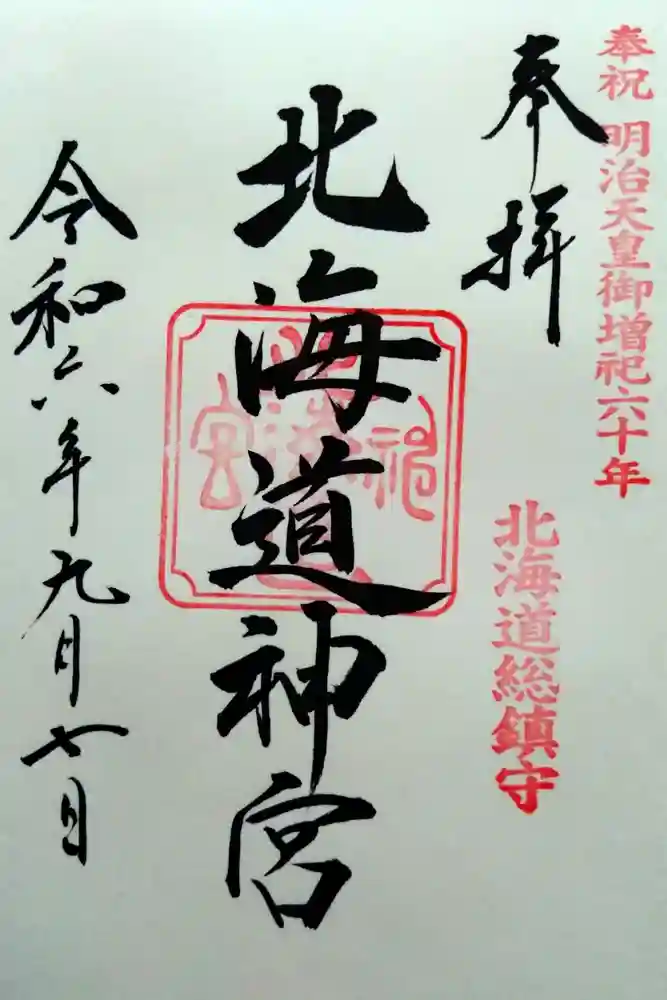 奉祝 明治天皇御増祀六十年
奉拝
北海道総鎮守
北海道神宮
令和六年九月七日